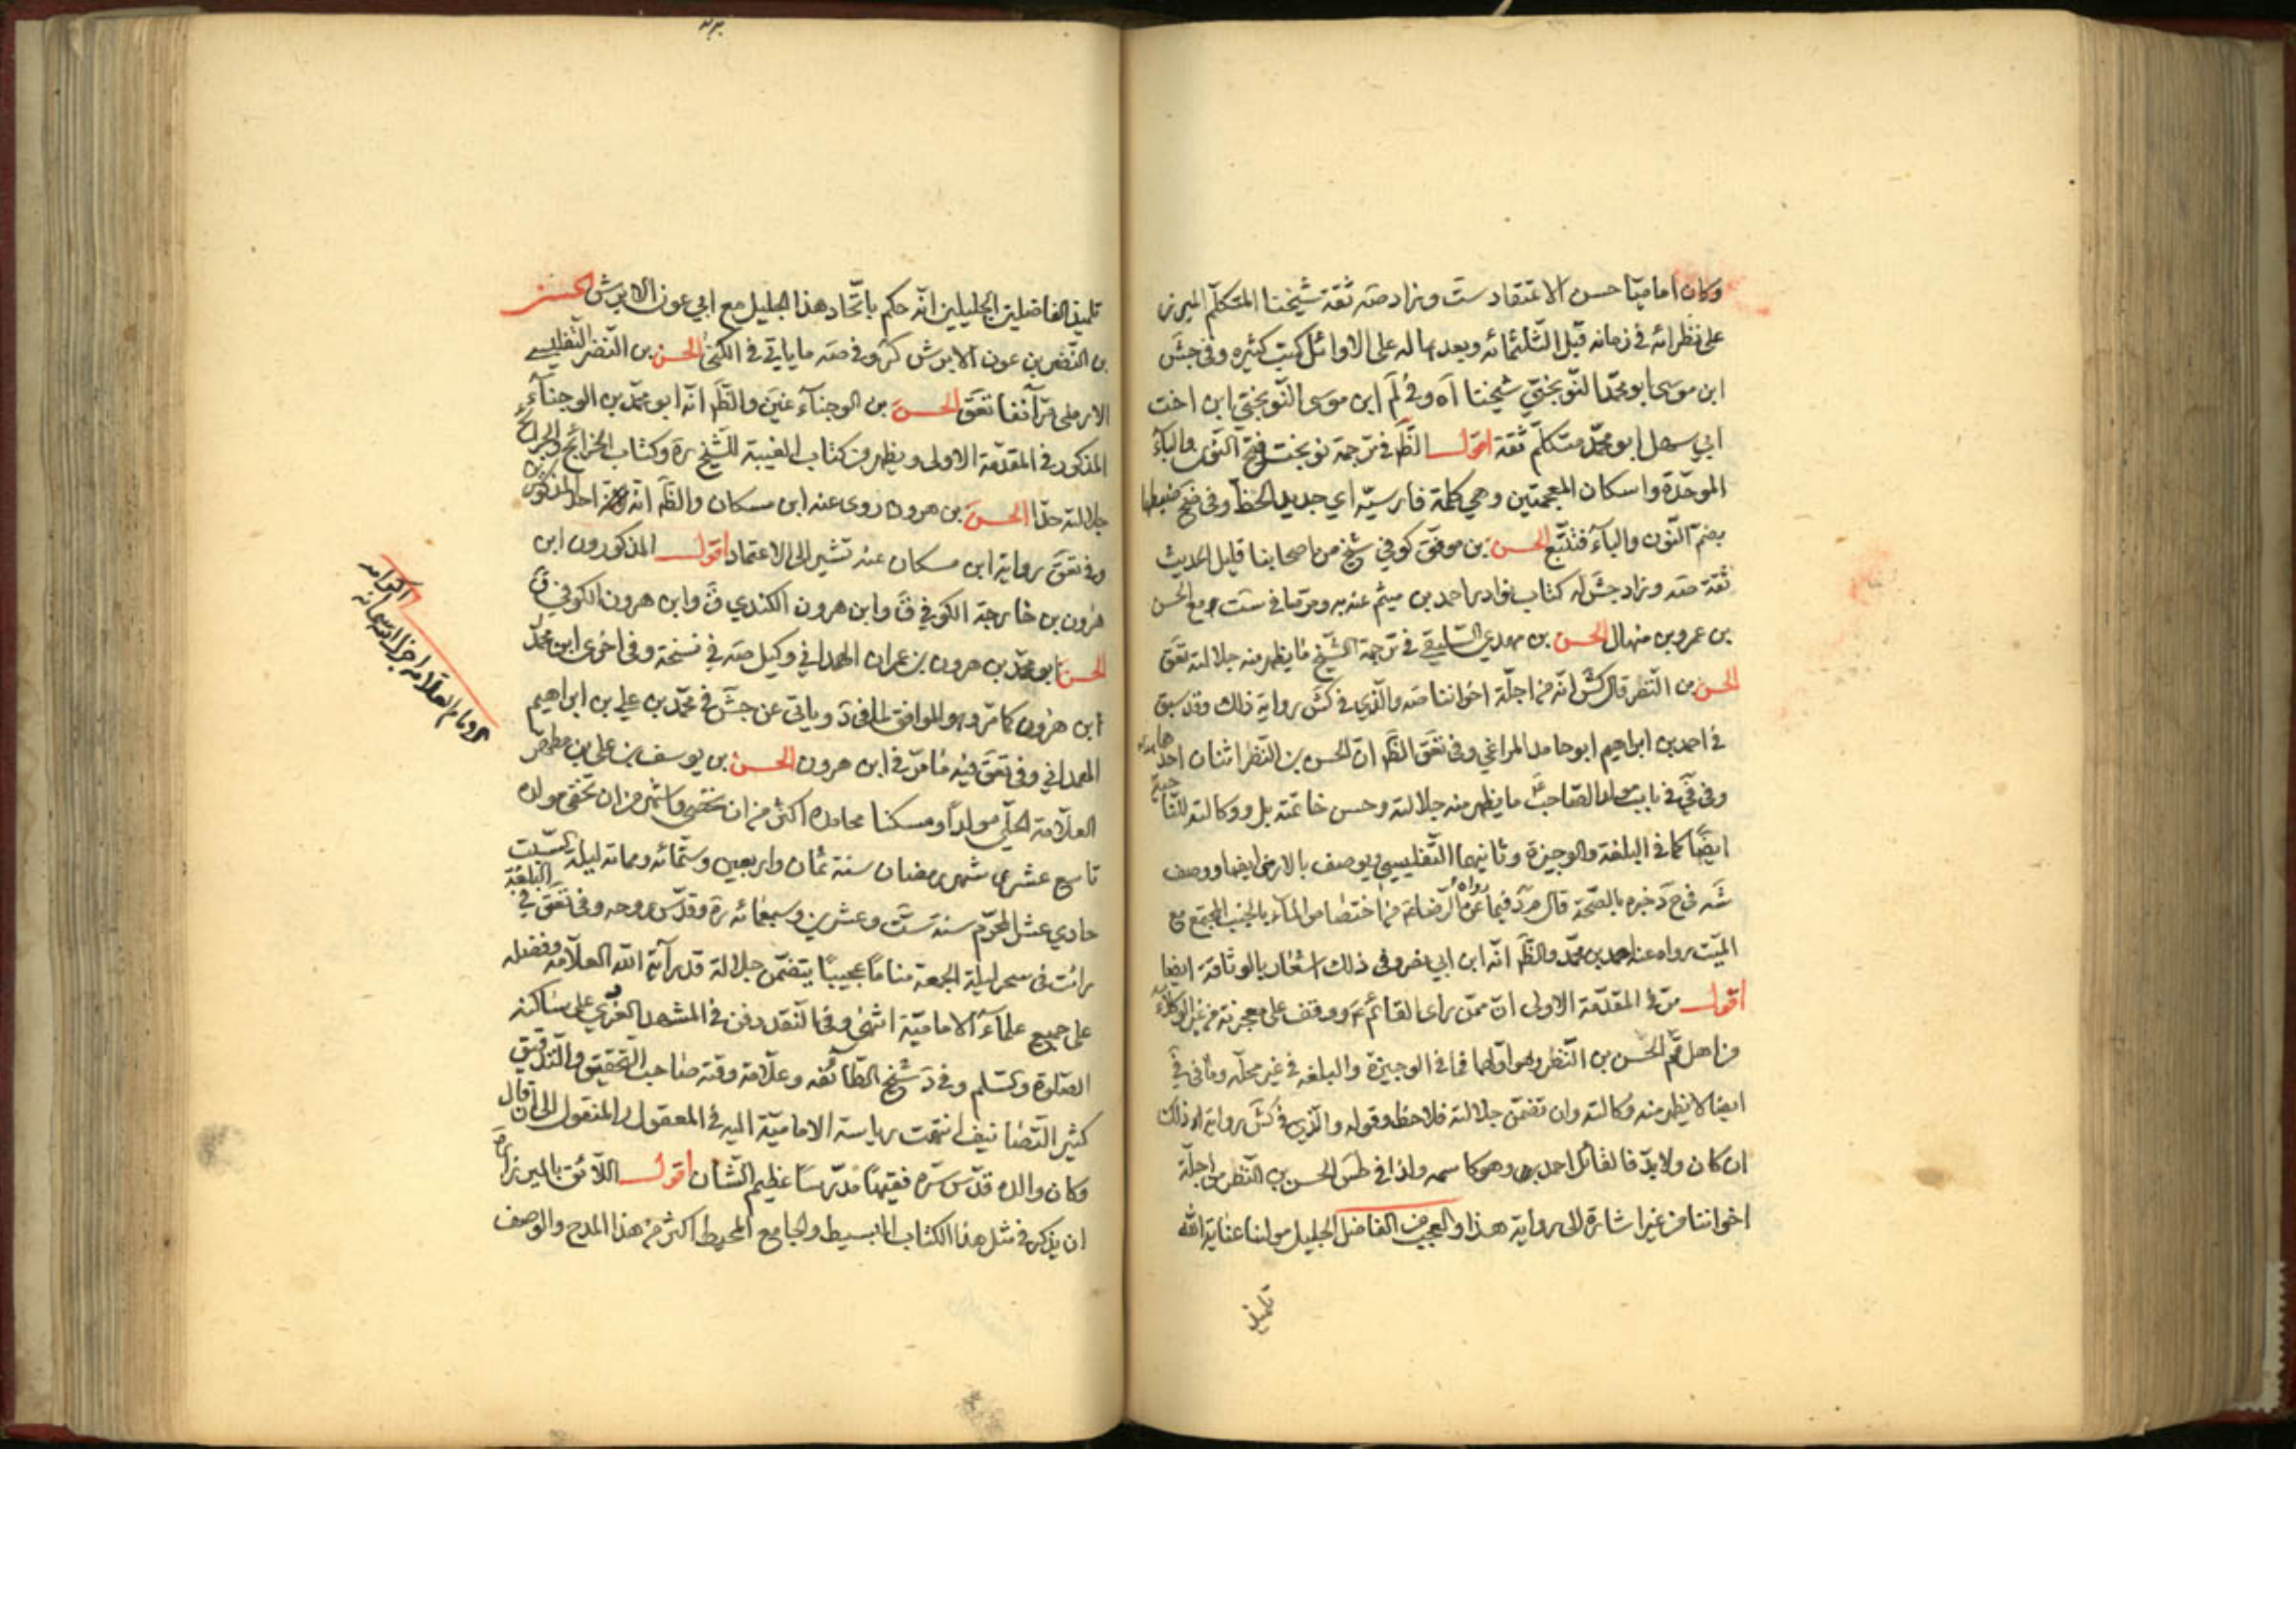 وكان اماميّا حسن الاعتقاد ست وزاد صه ثقة شيخنا المتكلّم المبرز
على نظرائه في زمانه قبل الثلثمائه وبعدها له على الاوائل كتب كثيره وفي جش
ابن موسى ابو محمّد النّوبختي شيخنا اه وفي لم ابن موسى النّوبختي ابن اخت
ابي سهل ابو محمّد متكلّم ثقة اقول الظّ في ترجمة نوبخت فتح النّون والباء
الموحّدة واسكان المعجمتين وهي كلمة فارسيّه اي جديد الحظ وفي ضح ضبطها
بضمّ النّون والباء فتتبّع الحسن بن موفق كوفي شيخ من اصحابنا قليل الحديث
ثقة صه وزاد جش له كتاب نوادر احمد بن ميثم عنه به ومرّ ما في ست مع الحسن
بن عمرو بن منهال الحسن بن مهدي السّليقي في ترجمة الشّيخ ما يظهر منه جلالته تعق
الحسن بن النّظر قال كش انّه من اجلّة اخواننا صه والّذي في كش رواية ذلك وقد سبق
في احمد بن ابراهيم ابو حامد المراغي وفي تعق الظّ انّ الحسن بن النّظر اثنان احدهما
وفي في في باب مولد الصّاحب ع ما يظهر منه جلالته وحسن خاتمته بل ووكالته للنّاحية
ايضا كما في البلغة والوجيزة وثانيهما التّفليسي ويوصف بالارمني ايضا ووصف
شه في ح د خبره بالصّحّة قال مرّد فيما رواه عن الرّضا ع من اختصاص الماء بالجنب المجتمع مع
الميّت رواه عنه احمد بن محمّد والظّ انّه ابن ابي نصر وفي ذلك اشعار بالوثاقة ايضا
اقول مرّ في المقدّمة الاولى انّ ممّن راى القائم ع ووقف على معجزته من غير الوكلاء
من اهل قم الحسن بن النّظر وهو اوّلهما فما في الوجيزة والبلغة في غير محلّه وما في في
ايضا لا يظهر منه وكالته وان تضمّن جلالته فلاحظ وقوله والّذي في كش رواية اه ذلك
ان كان ولابدّ فالقائل احمد وهو كاسمه ولذا في طس الحسن بن النّظر من اجلّة
اخواننا من غير اشارة الى رواية هذا والعجب من الفاضل الجليل مولنا عناية الله
تلميذ
تلميذ الفاضلين الجليلين انّه حكم باتّحاد هذا الجليل مع ابي عون الابرش الحسن
بن النّضر بن عون الابرش كر وفي صه ما ياتي في الكنى الحسن بن النّضر التّفليسي
الارمني مرّ آنفا تعق الحسن بن الوجناء عنين والظّ انّه ابو محمّد بن الوجناء
المذكور في المقدّمة الاولى ويظهر من كتاب الغيبة للشّيخ ره وكتاب الخرائج والجرائح
جلالته جدّا الحسن بن هرون روى عنه ابن مسكان والظّ انّه احد المذكورين
وفي تعق رواية ابن مسكان عنه تشير الى الاعتماد اقول المذكورون ابن
هرون بن خارجة الكوفي ق وابن هرون الكندي ق وابن هرون الكوفي ق
الحسن ابو محمّد بن هرون بن عمران الهمداني وكيل صه في نسخة وفي اخرى ابن محمّد
ابن هرون كما مرّ وهو الموافق لما في د وياتي عن جش في محمّد بن علي بن ابراهيم
الهمداني وفي تعق فيه ما مرّ في ابن هرون الحسن بن يوسف بن علي بن مطهر
العلّامة الحلّي مولدا ومسكنا محامده اكثر من ان تحصى واشهر من ان تخفى مولده
تاسع عشري شهر رمضان سنة ثمان واربعين وستّمائه ومماته ليلة السّبت
حادي عشر المحرّم سنة ستّ وعشرين وسبعمائه ره وقدّس روحه وفي تعق في البلغة
رأيت في سحر ليلة الجمعة مناما عجيبا يتضمّن جلالة قدر آية الله العلّامة وفضله
على جميع علماء الاماميّة انتهى وفي النّقد دفن في المشهد الغروي على ساكنه
الصّلوة والسّلم وفي د شيخ الطّائفه وعلّامة وقته صاحب التّحقيق والتّدقيق
كثير التّصانيف انتهت رياسة الاماميّة اليه في المعقول والمنقول الى ان قال
وكان والده قدّس سرّه فقيها مدرّسا عظيم الشّان اقول اللّائق بالميرزا ره
ان يذكر في مثل هذا الكتاب البسيط والجامع المحيط اكثر من هذا المدح والوصف